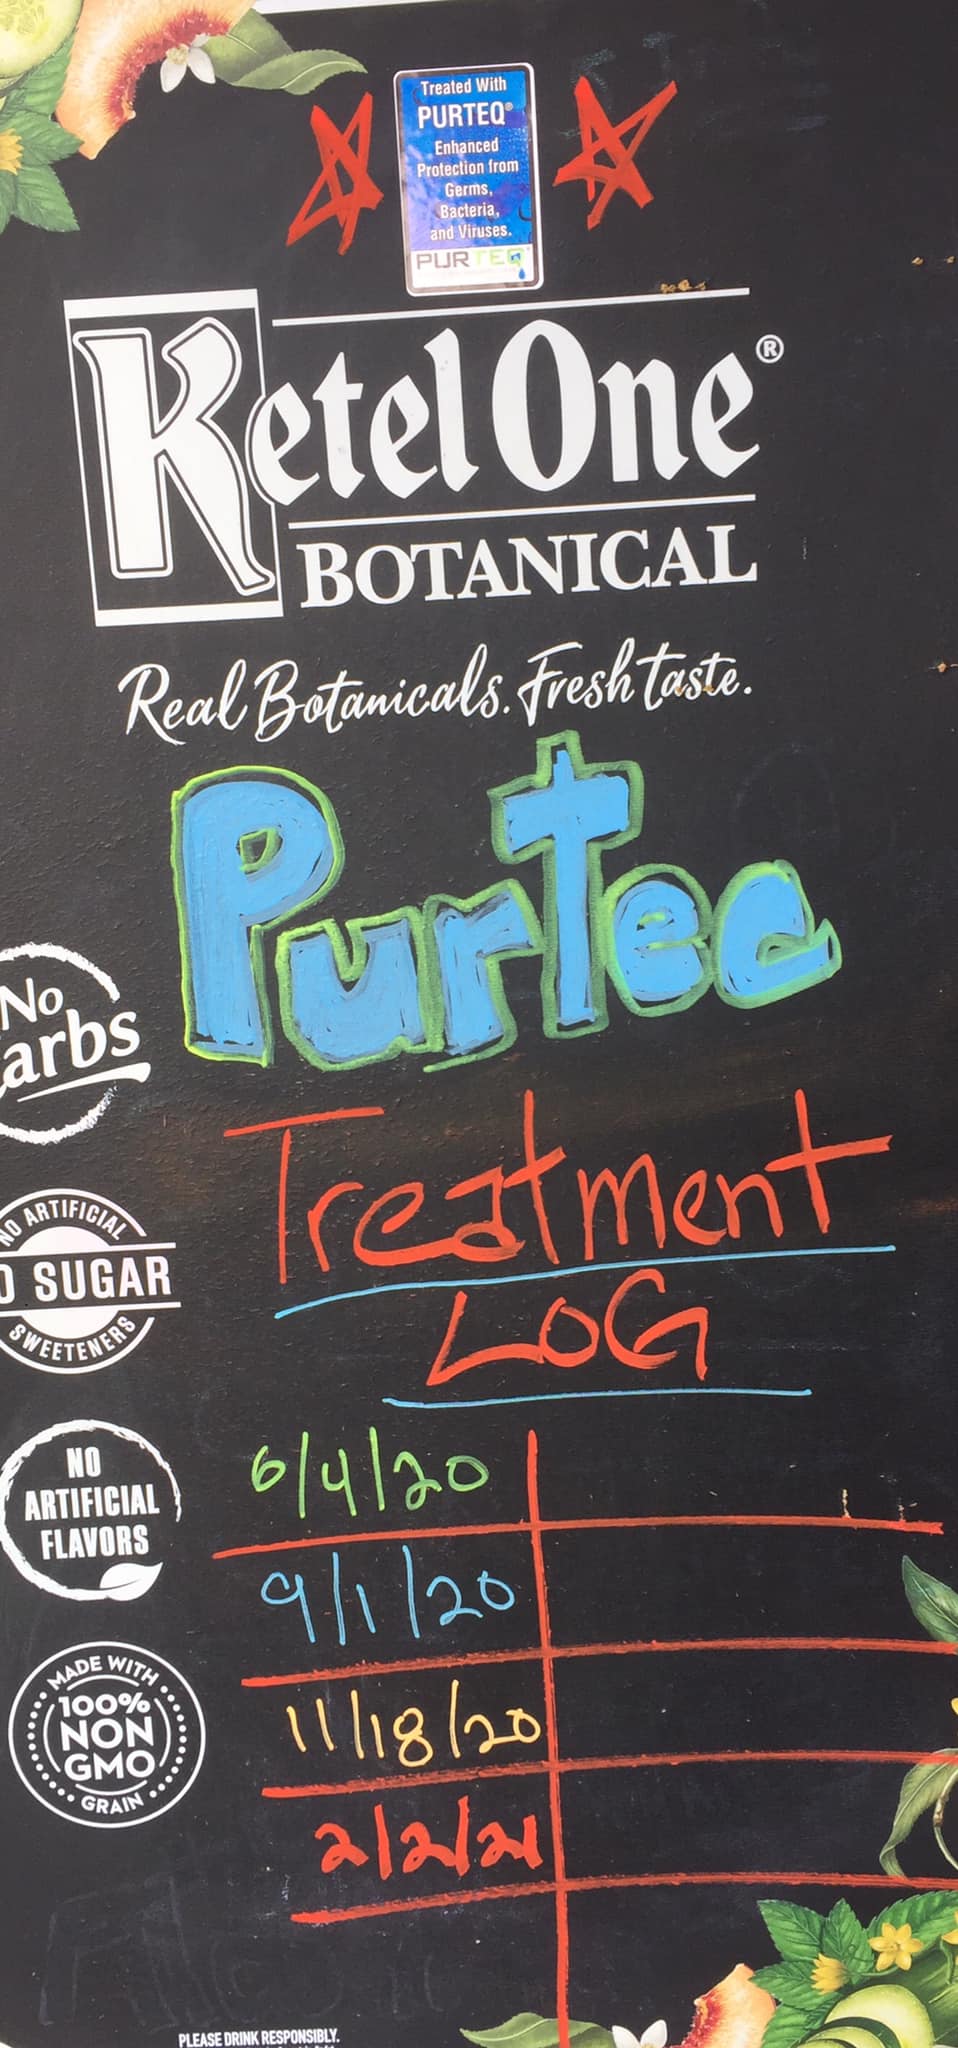 Treated With
PURTEQ®
Enhanced
Protection from
Germs,
Bacteria,
and Viruses.
PURTEQ
Ketel One®
BOTANICAL
Real Botanicals. Fresh taste.
Purtec
No
arbs
Treatment
LOG
NO ARTIFICIAL
SUGAR
SWEETENERS
6/4/20
NO
ARTIFICIAL
FLAVORS
9/1/20
11/18/20
MADE WITH
100%
NON
GMO
GRAIN
2/2/21
PLEASE DRINK RESPONSIBLY.